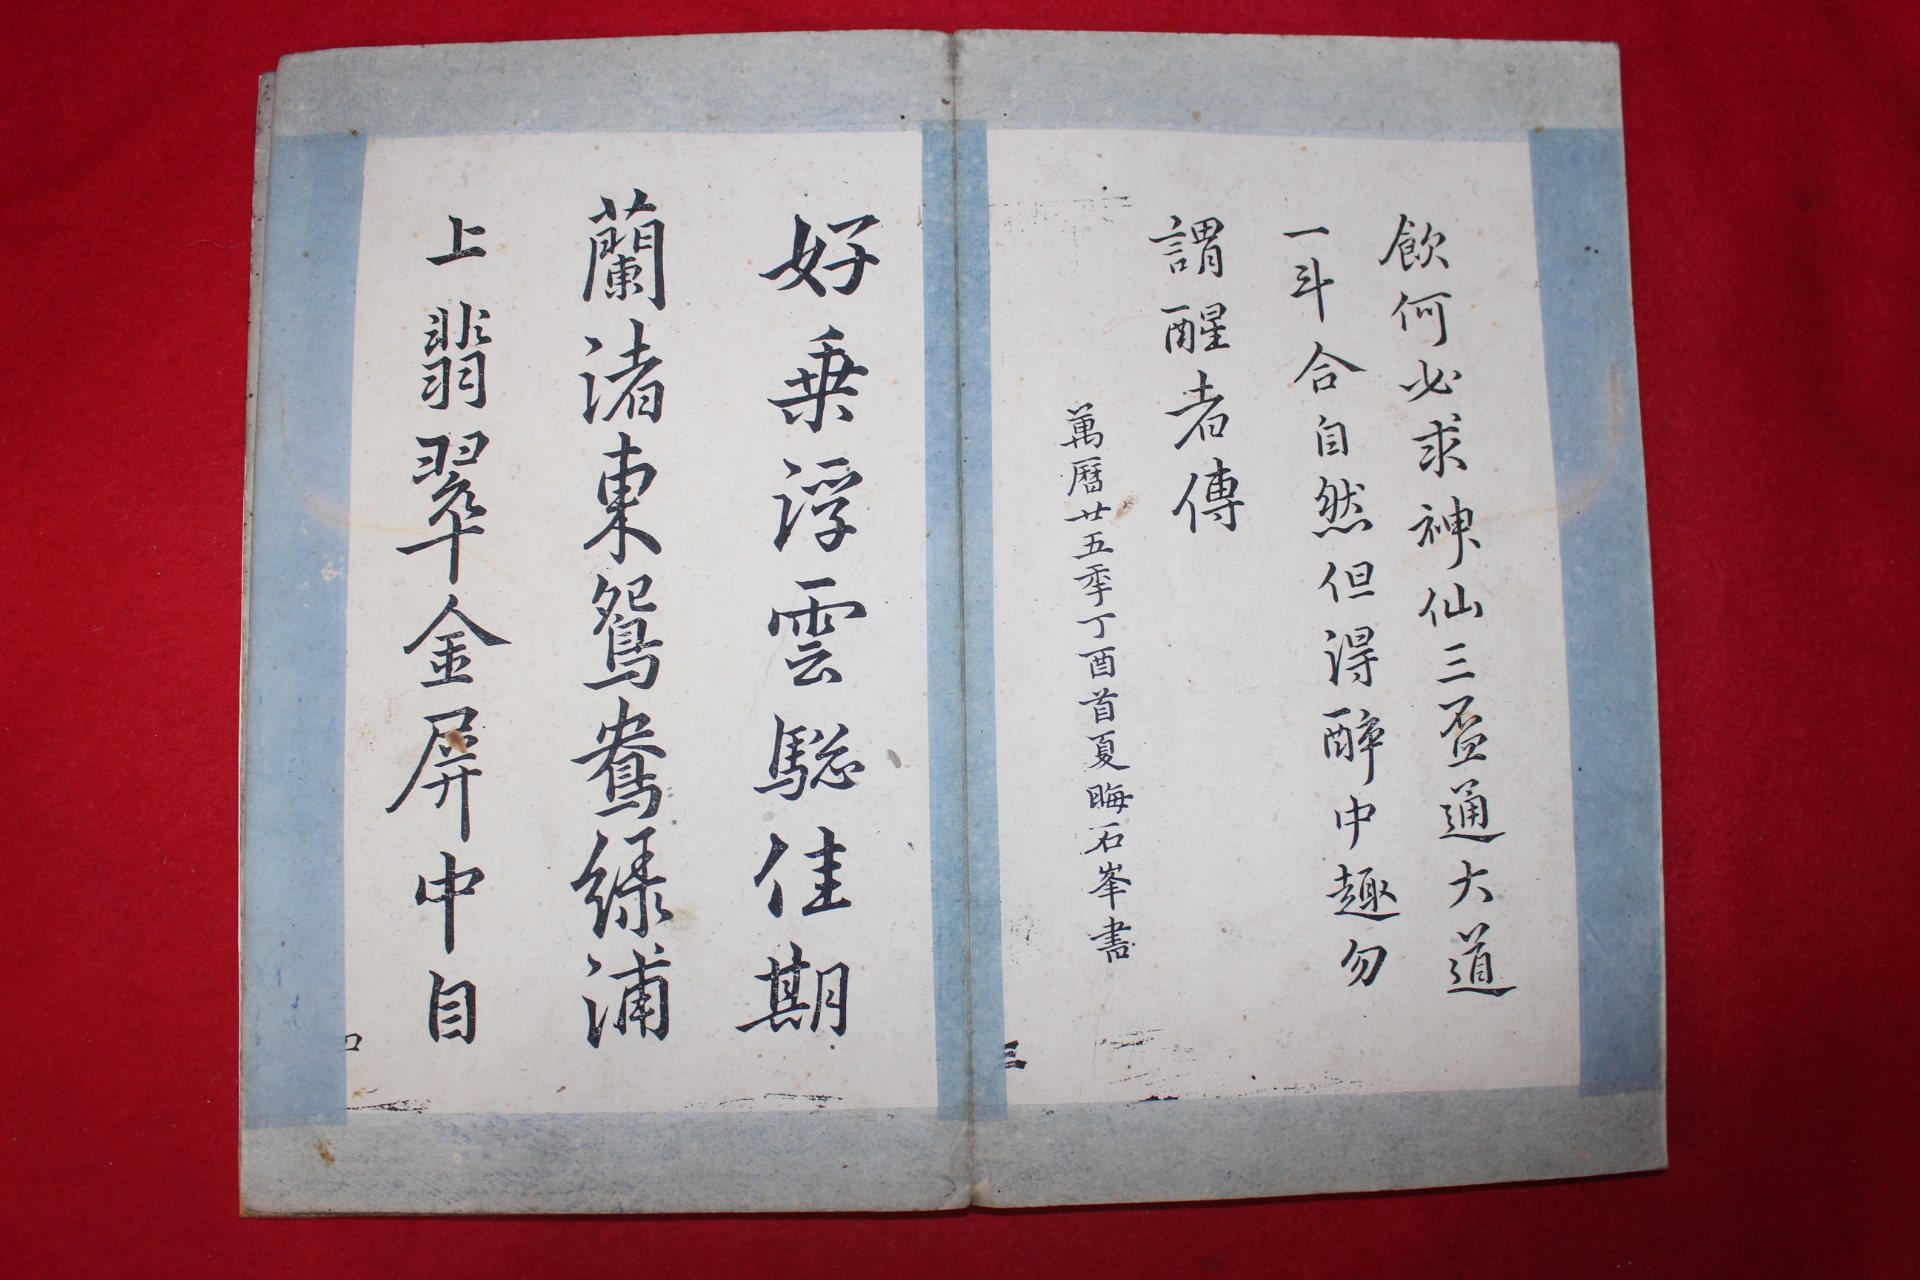 飲何必求神仙三盃通大道
一斗合自然但得醉中趣勿
謂醒者傳
萬曆廿五季丁酉首夏晦石峯書
三
好乗浮雲驄佳期
蘭渚東鴛鴦綠浦
上翡翠金屏中自
四